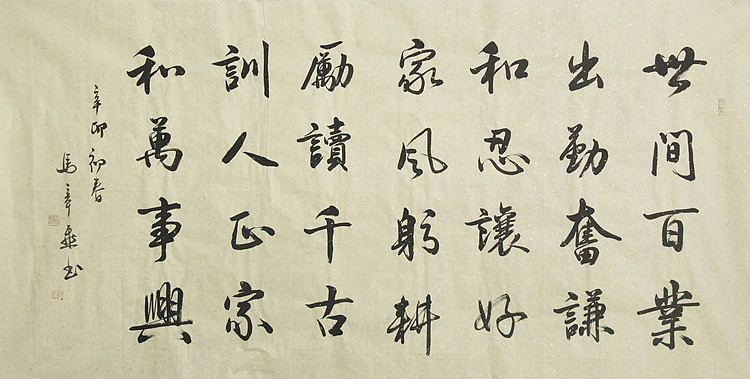 世間百業
出勤奮謙
和忍讓好
家風躬耕
勵讀千古
訓人正家
和萬事興
辛卯初春
馬章乘书